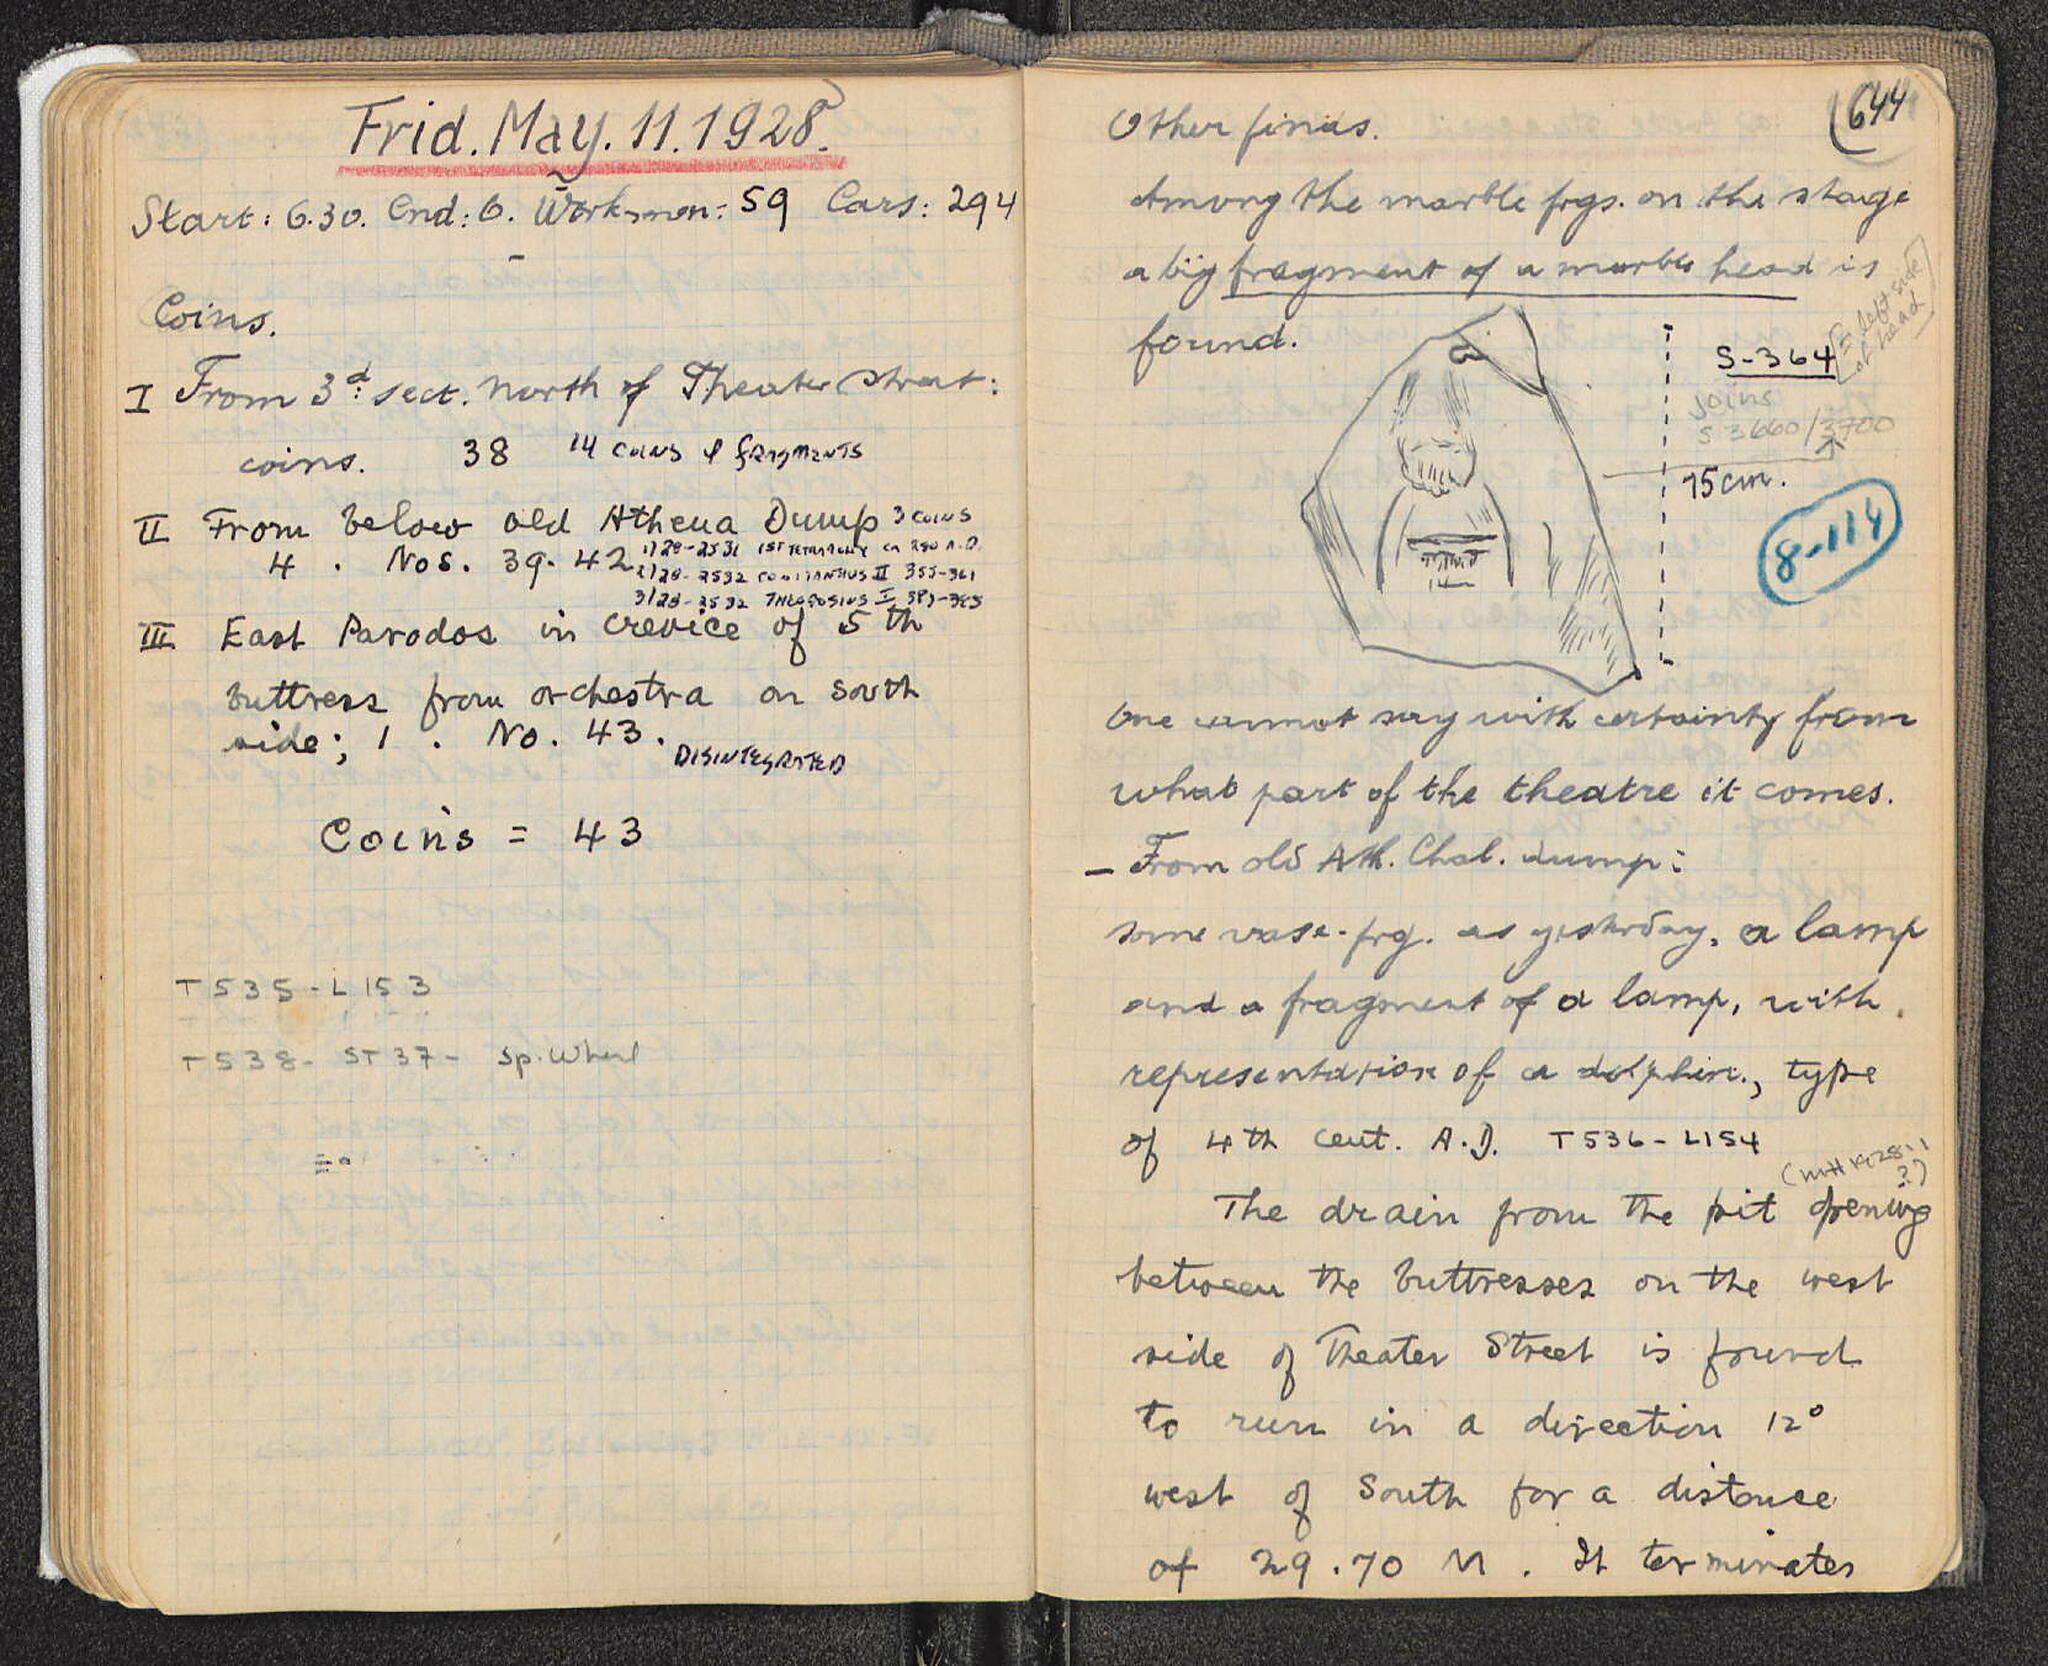 Frid. May. 11. 1928.
Start: 6.30. End: 6. Workmen: 59 Cars: 294
Coins.
I From 3d. sect. North of Theater Street:
coins. 38 14 COINS & FRAGMENTS
II From below old Athena Dump 3 COINS
4 . Nos. 39-42 1) 28-2531 1ST TETRARCHY CA 290 A.D.
2) 28-2532 CONSTANTIUS II 355-361
3) 28-2532 THEODOSIUS I 383-
III East Parodos in crevice of 5th
buttress from orchestra on south
side; 1 . No. 43. DISINTEGRATED
Coins = 43
T535-L153
T538- ST37- Sp. Whorl
644
Other finds.
Among the marble frgs. on the stage
a big fragment of a marble head is
found.
= left side
of head
S-364
joins
S 3660/3700
75 cm.
8-114
One cannot say with certainty from
what part of the theatre it comes.
– From old Ath. Chal. dump:
some vase-frg. as yesterday, a lamp
and a fragment of a lamp, with
representation of a dolphin, type
of 4th cent. A.D. T536-L154
The drain from the pit opening
between the buttresses on the west
side of Theater Street is found
to run in a direction 12°
west of South for a distance
of 29.70 M. It terminates